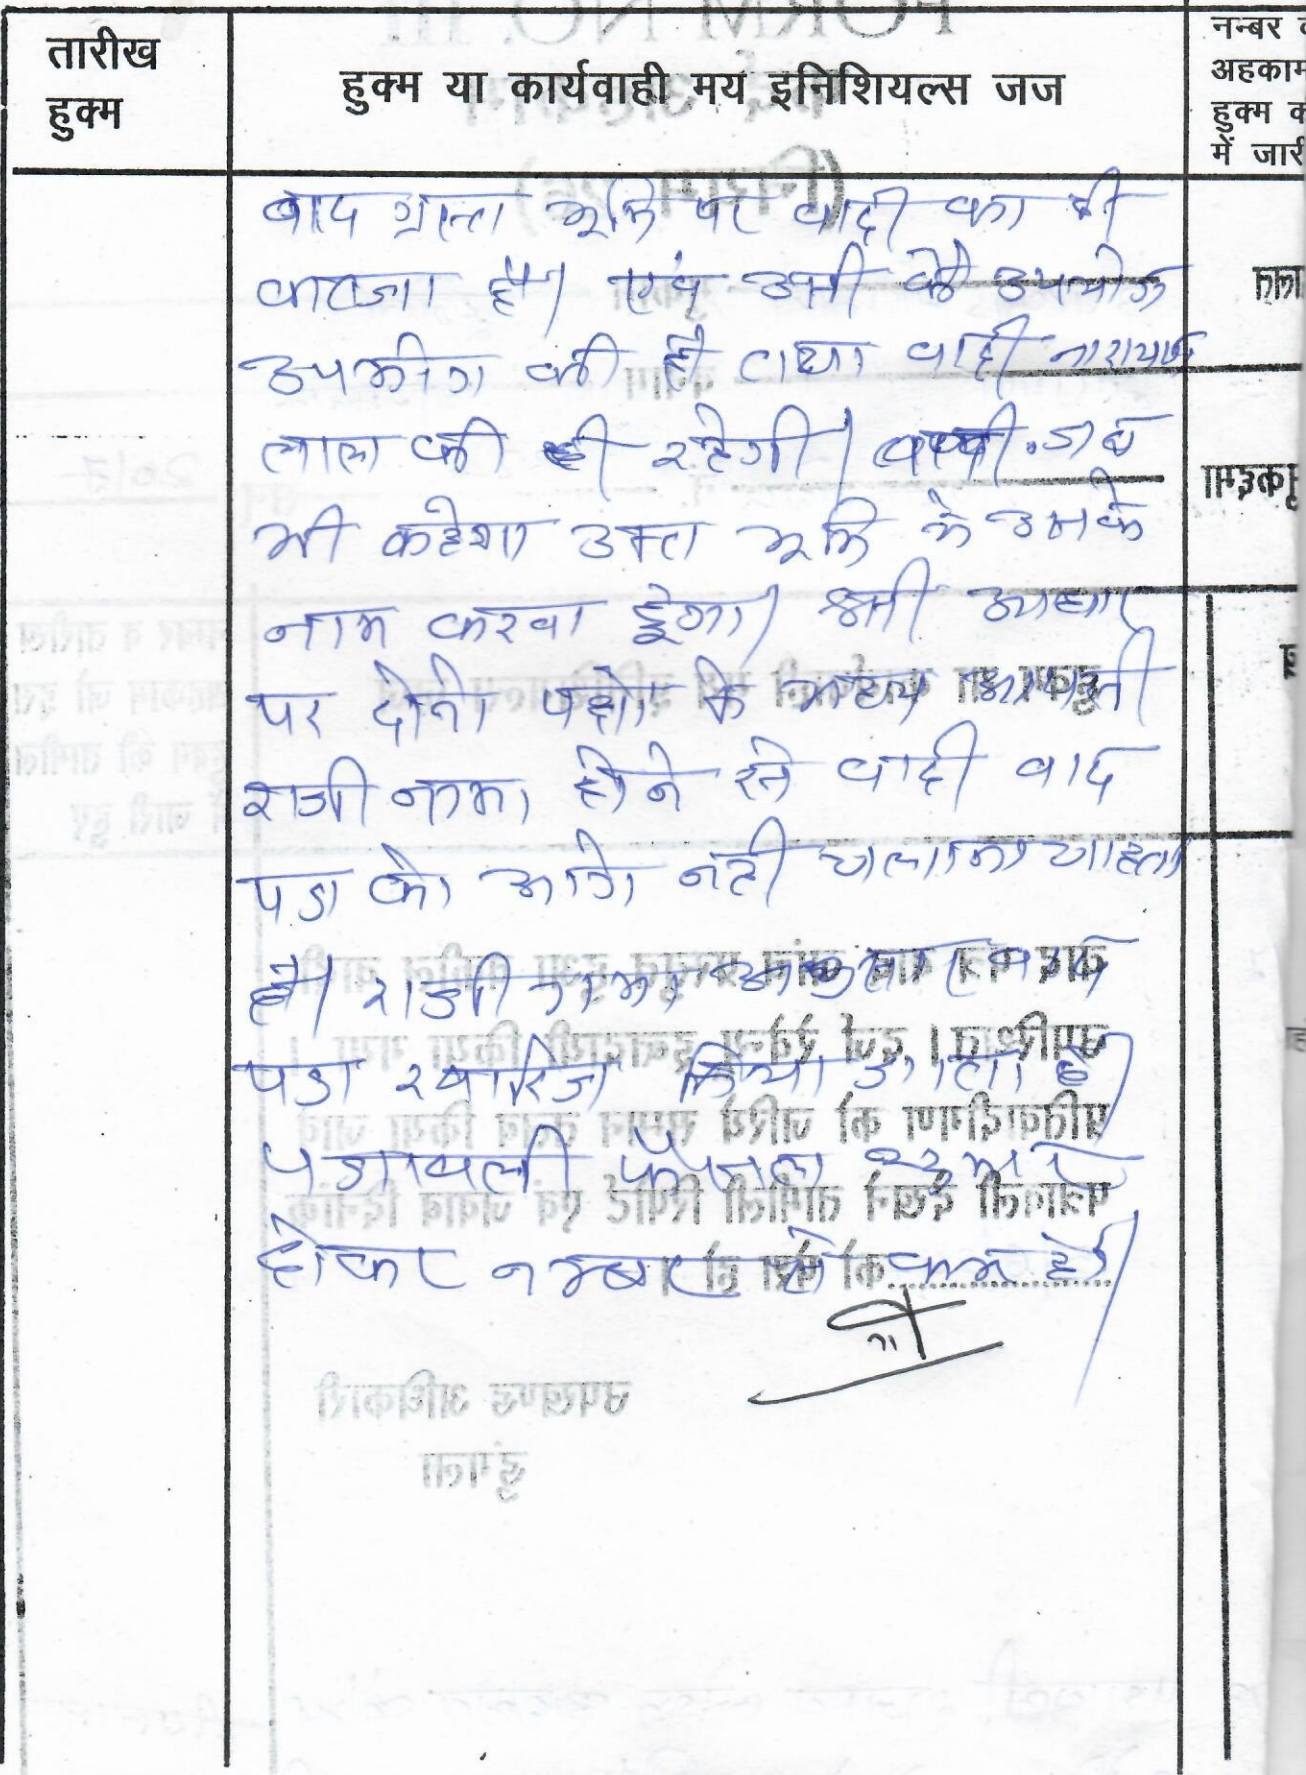 तारीख
हुक्म
हुक्म या कार्यवाही मय इनिशियल्स जज
नम्बर
अहकाम
हुक्म
में जारी
वाद ग्रस्त भूमि पर वादी का ही
कब्जा है। एवं उसी के उपयोग
उपभोग की है तथा वादी नारायण
लाल की ही रहेगी। जब
भी कहेगा उक्त भूमि को उसके
नाम करवा दूंगा। इसी आधार
पर दोनो पक्षो के मध्य आपसी
राजीनामा होने से वादी वाद
पत्र को आगे नही चलाना चाहता
है। राजीनामा अनुसार वाद
पत्र खारिज किया जाता है।
पत्रावली फैसल शुमार
होकर नम्बर से कम हो।